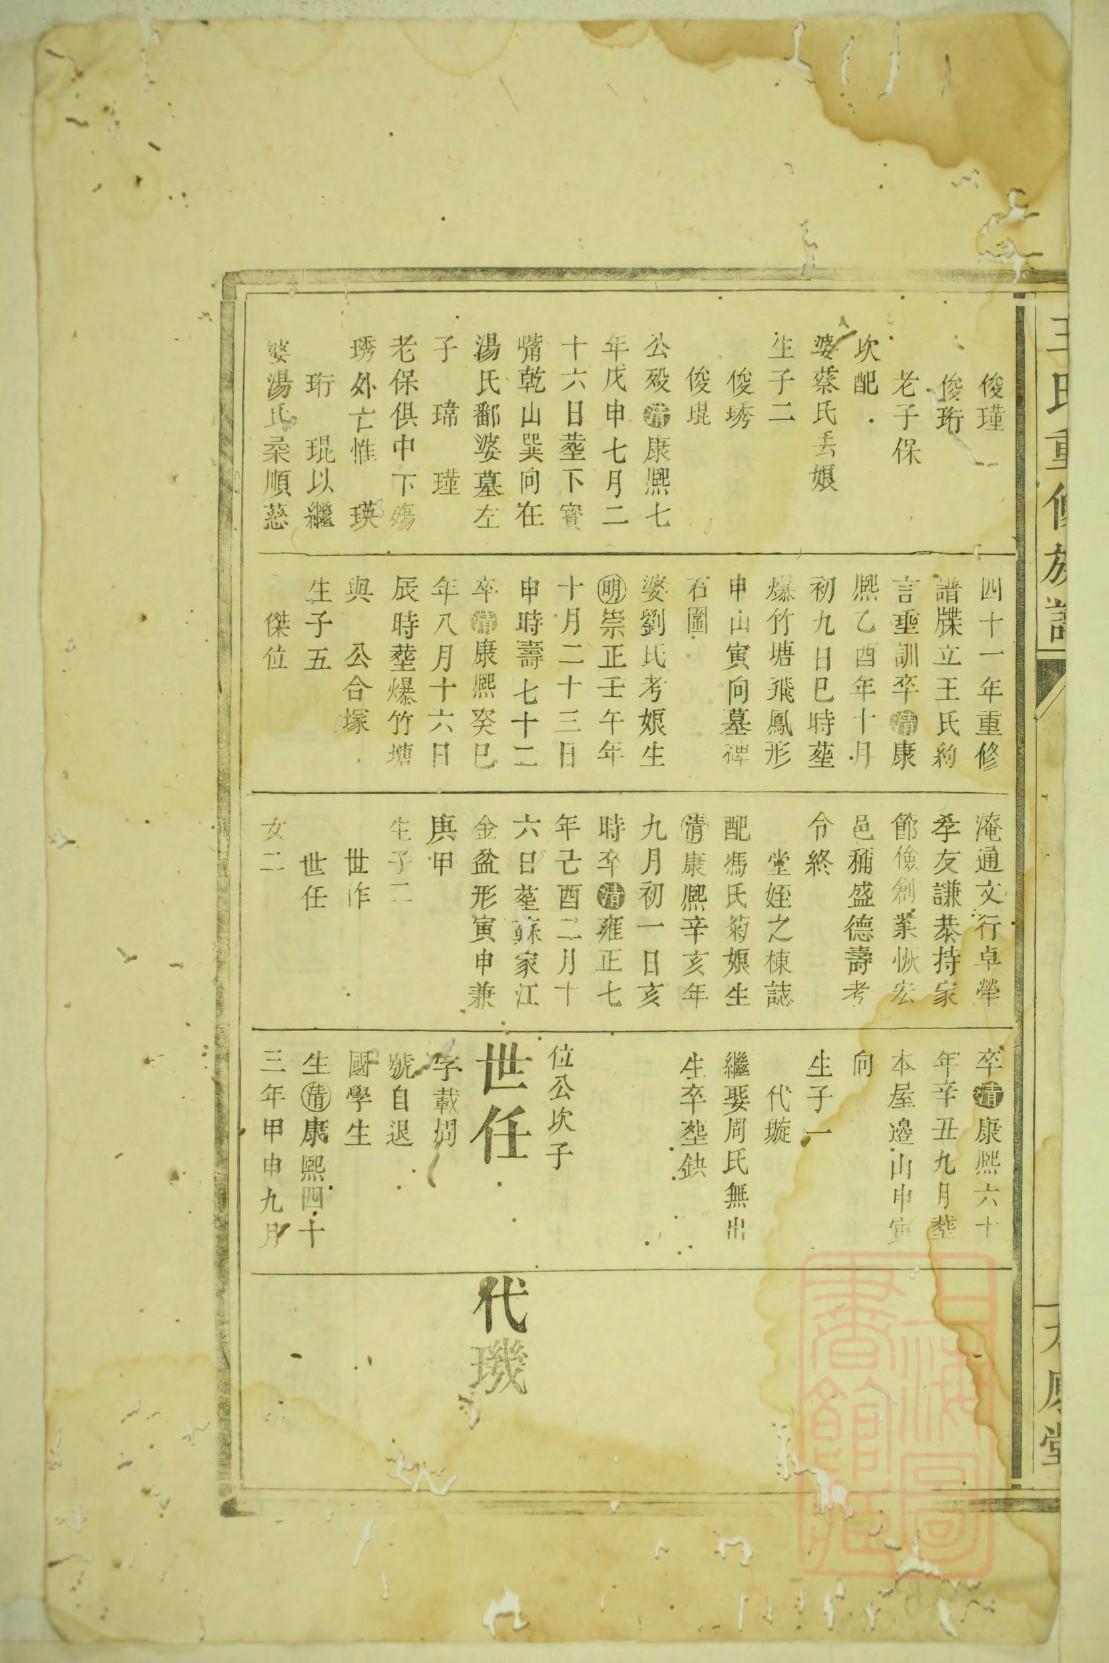 王氏重修族譜
俊瑾
俊珩
老子保
坎配
婆蔡氏丢娘
生子二
俊琇
俊琨
公歿清康熙七
年戊申七月二
十六日塟下寳
嘴乾山巽向在
湯氏鄱婆墓左
子　瑋　瑾
老保俱中下殤
琇外亡惟　瑛
珩　琨以繼
婆湯氏柔順慈
四十一年重修
譜牒立王氏約
言垂訓卒清康
熙乙酉年十月
初九日巳時塟
爆竹塘飛鳳形
申山寅向墓碑
石圖
婆劉氏考娘生
明崇正壬午年
十月二十三日
申時壽七十二
卒清康熙癸巳
年八月十六日
辰時塟爆竹塘
與　公合塚
生子五
傑位
淹通文行卓犖
孝友謙恭持家
節儉創業恢宏
邑稱盛德壽考
令終
堂姪之棟誌
配馮氏菊娘生
清康熙辛亥年
九月初一日亥
時卒清雍正七
年己酉二月十
六日塟蘇家江
金盆形寅申兼
庚甲
生子二
世作
世任
女二
卒清康熙六十
年辛丑九月塟
本屋邊山申寅
向
生子一
代璇
繼娶周氏無出
生卒塟缺
位公坎子
世任
字載
號自退
國學生
生清康熙四十
三年甲申九月
代璣